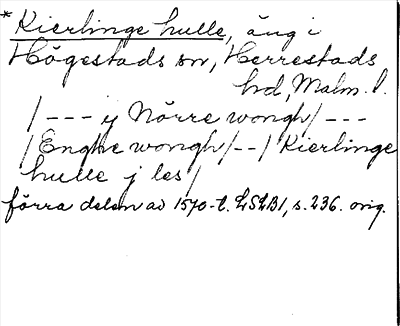 * Kierlinge hulle, äng i
Högestads sn, Herrestads
hd, Malm. l.
/--- ÿ Nörre wongh/---
/Enghe wongh/--/Kierlinge
hulle j les/
förra delen av 1570-t. LSLB1, s. 236. orig.